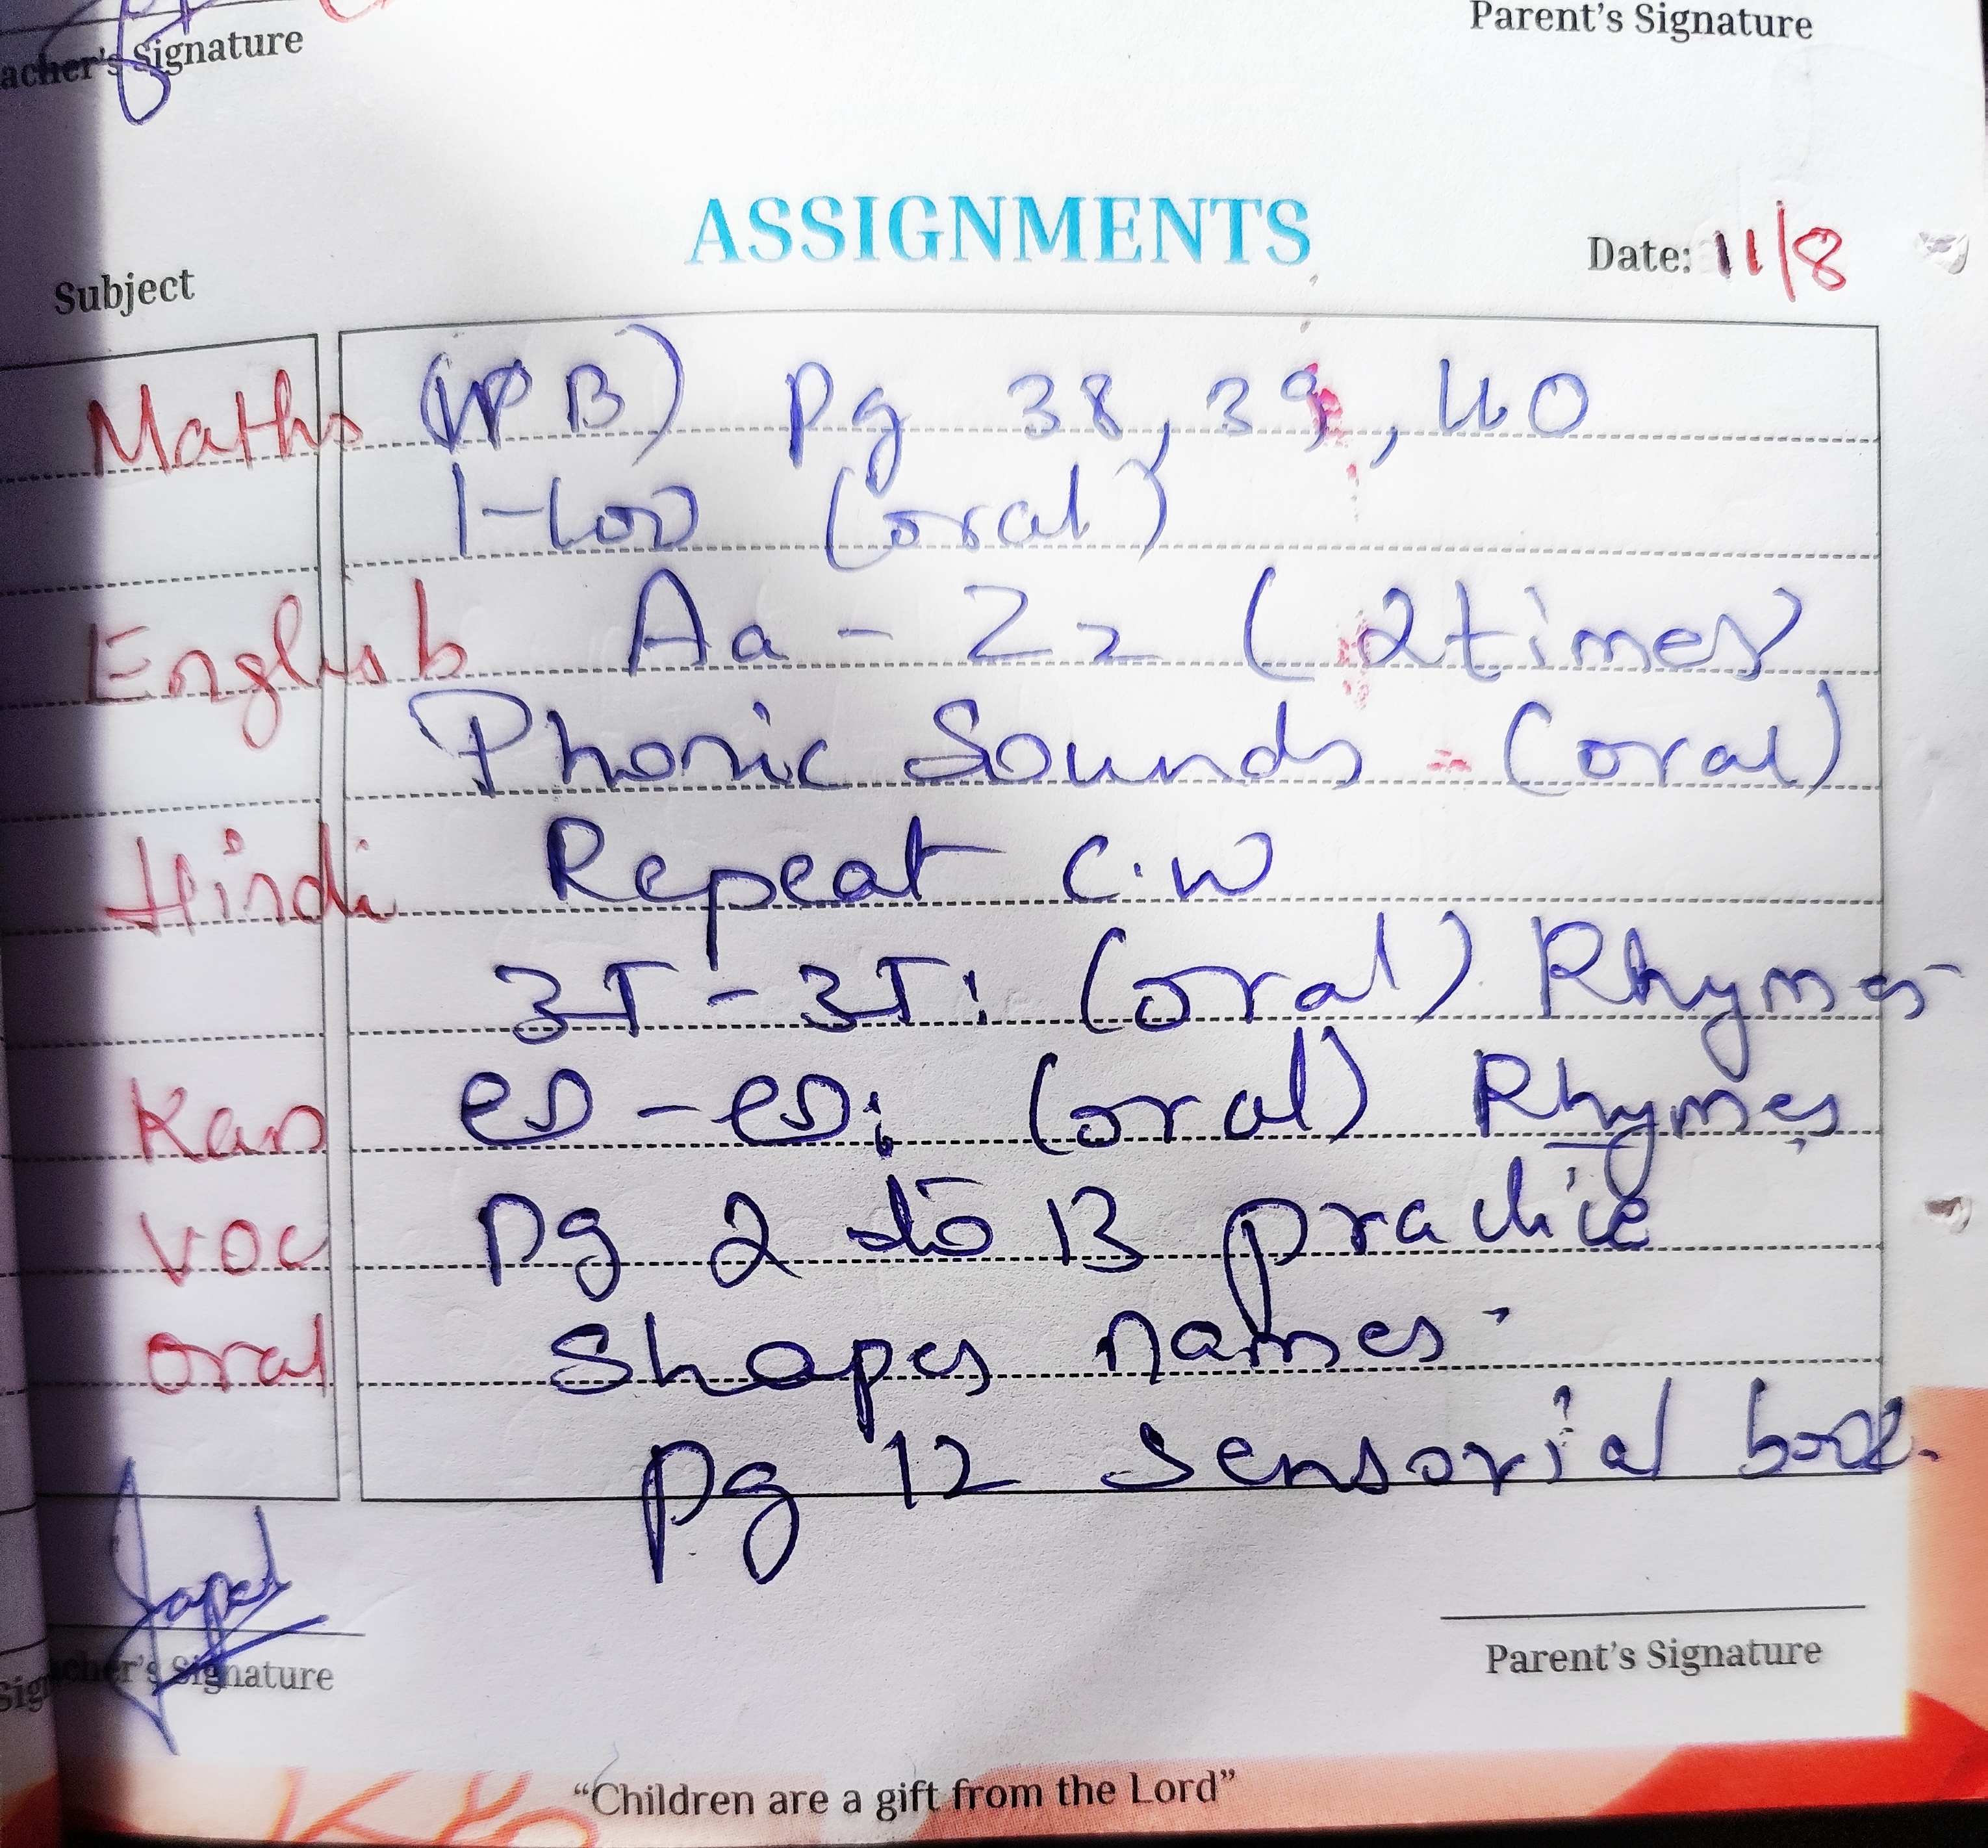 Teacher's Signature Parent's Signature
ASSIGNMENTS
Subject Date: 11/8
Maths (WB) Pg 38, 39, 40
1-100 (oral)
English Aa - Zz (2 times)
Phonic Sounds - (oral)
Hindi Repeat C.W
अ - अः (oral) Rhymes
Kan ಅ - ಅಃ (oral) Rhymes
VOC Pg 2 to 13 practice
Oral Shapes names.
Pg 12 Sensorial book.
Teacher's Signature Parent's Signature
“Children are a gift from the Lord”